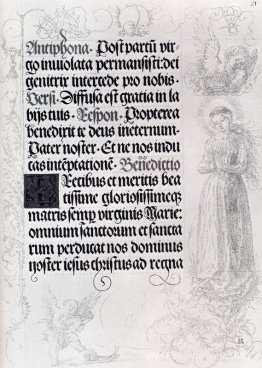 Antiphona. Post partū vir-
go inuiolata permansisti: dei
genitrix intercede pro nobis.
Versi. Diffusa est gratia in la
bijs tuis. Respon. Propterea
benedixit te deus ineternum.
Pater noster. Et ne nos indu
cas intēptationē. Benedictio
Precibus et meritis bea
tissime gloriosissimeqȝ
matris semp virginis Marie:
omnium sanctorum et sancta
rum perducat nos dominus
noster iesus christus ad regna